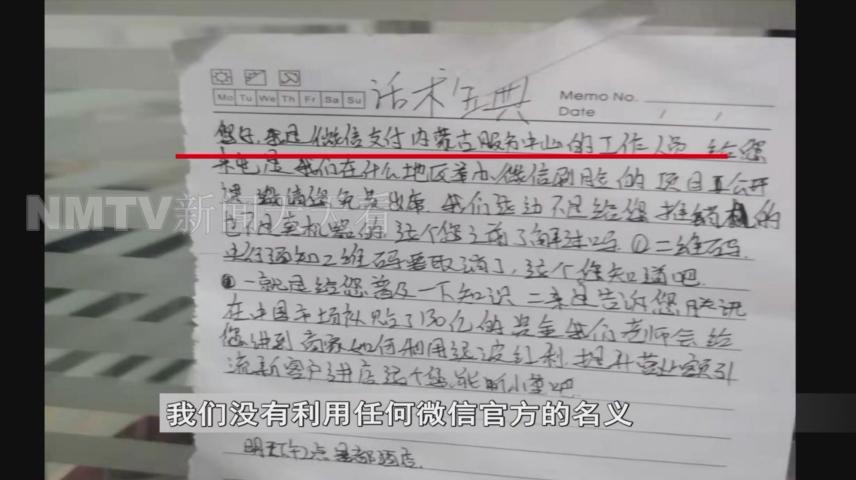 话术宝典
Mo Tu We Th Fr Sa Su
Memo No.
Date / /
您好,我是微信支付内蒙古服务中心的工作人员 给您
来电是我们在什么地区举办微信刷脸的项目 公开
课 邀请您免费出席 我们活动不是给您推销机的
也不是卖机器的 这个您之前了解过吗 ①二维码
知二维码要取消了,这个您知道吧
一就是给您普及一下知识 二来是告诉您腾讯
在中国市场补贴了130亿的奖金 我们老师会给
您讲到商家如何利用这波红利 提升营业额引
流新客户进店 这个您能听懂吧
明天 点 酒店.
NMTV新闻天天看
我们没有利用任何微信官方的名义